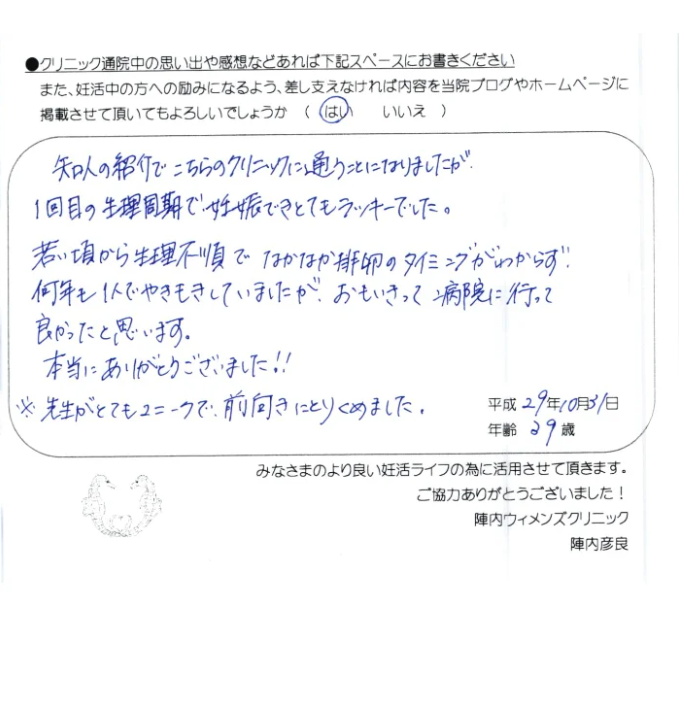 ●クリニック通院中の思い出や感想などあれば下記スペースにお書きください
また、妊活中の方への励みになるよう、差し支えなければ内容を当院ブログやホームページに
掲載させて頂いてもよろしいでしょうか （ はい　いいえ ）
知人の紹介でこちらのクリニックに通うことになりましたが、
1回目の生理周期で妊娠できとてもラッキーでした。
若い頃から生理不順で なかなか排卵のタイミングがわからず、
何年も1人でやきもきしていましたが、おもいきって 病院に行って
良かったと思います。
本当にありがとうございました!!
※先生がとてもユニークで、前向きにとりくめました。
平成29年10月31日
年齢 29歳
みなさまのより良い妊活ライフの為に活用させて頂きます。
ご協力ありがとうございました！
陣内ウィメンズクリニック
陣内彦良